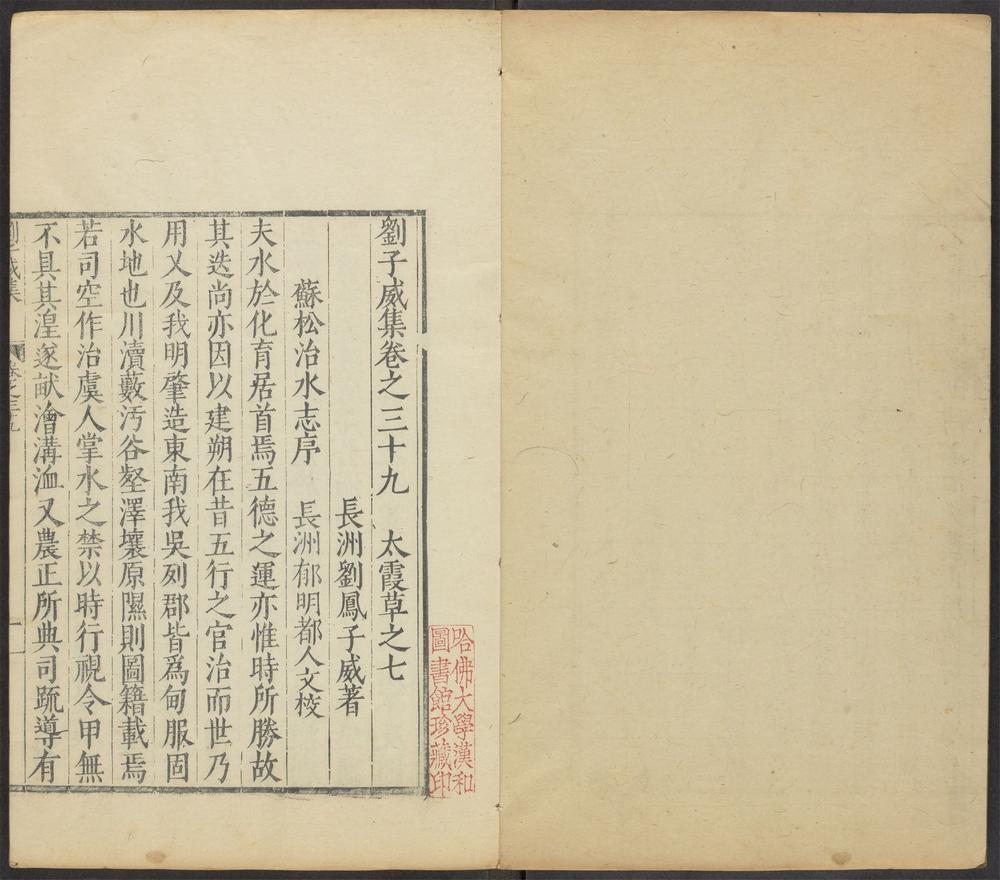 劉子威集卷之三十九　太霞草之七
長洲劉鳳子威著
蘇松治水志序　長洲郁明都人文校
夫水於化育居首焉五德之運亦惟時所勝故
其迭尚亦因以建朔在昔五行之官治而世乃
用乂及我明肇造東南我吳列郡皆爲甸服固
水地也川瀆藪汚谷壑澤壤原隰則圖籍載焉
若司空作治虞人掌水之禁以時行視令甲無
不具其湟遂畎澮溝洫又農正所典司疏導有
劉子威集　卷之三十九　一
哈佛大學漢和
圖書館珍藏印